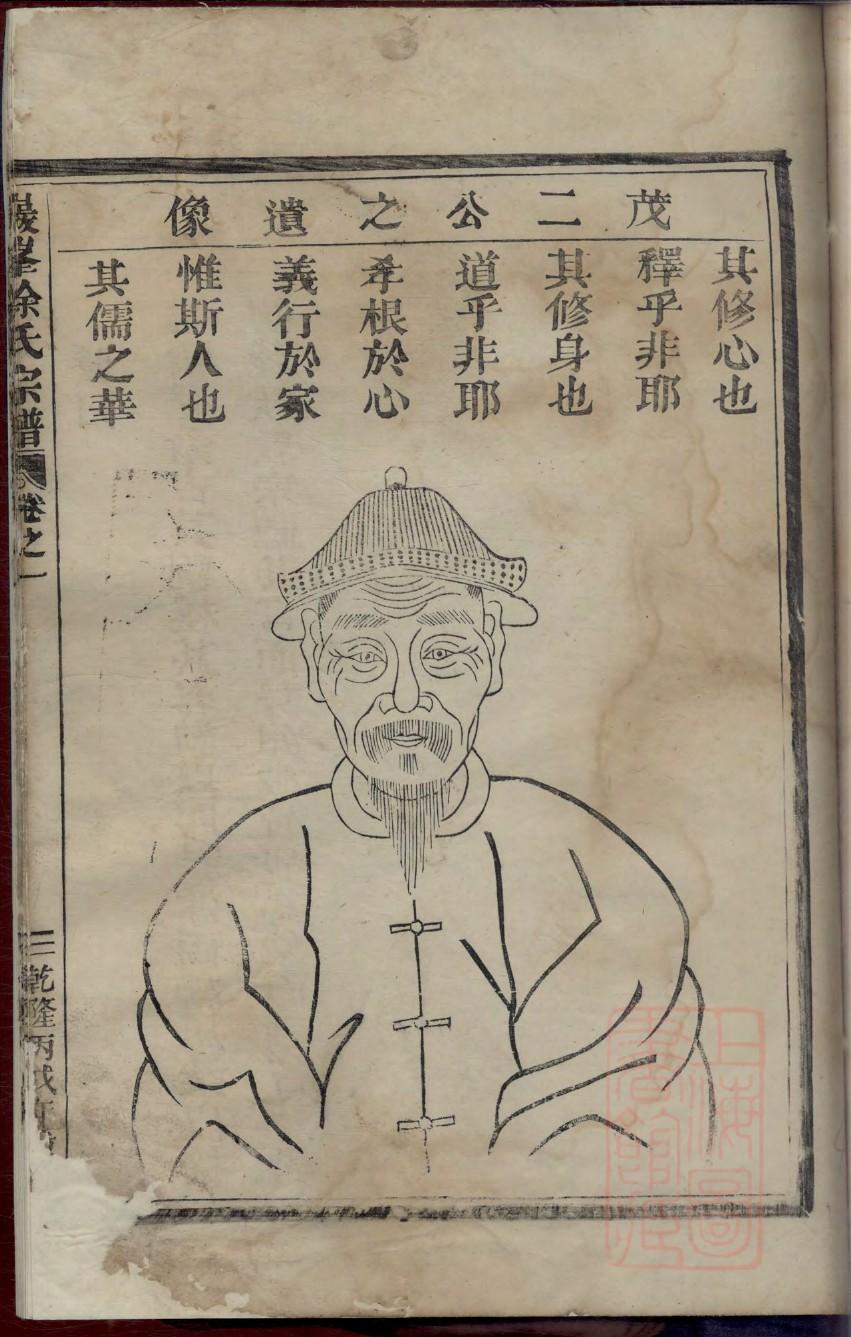 茂二公之遺像
其修心也
釋乎非耶
其修身也
道乎非耶
孝根於心
義行於家
惟斯人也
其儒之華
徐氏宗譜
卷之一
乾隆丙戌年
上海圖書館藏